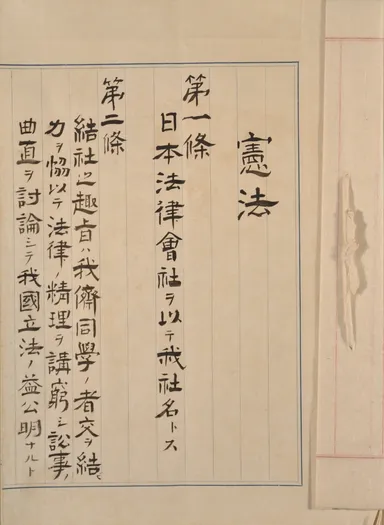 憲法
第一條
日本法律會社ヲ以テ我社名トス
第二條
結社之趣旨ハ我儕同學ノ者交ヲ結ヒ
力ヲ恊以テ法律ノ精理ヲ講窮シ訟事ノ
曲直ヲ討論シテ我國立法ノ益公明ナルト